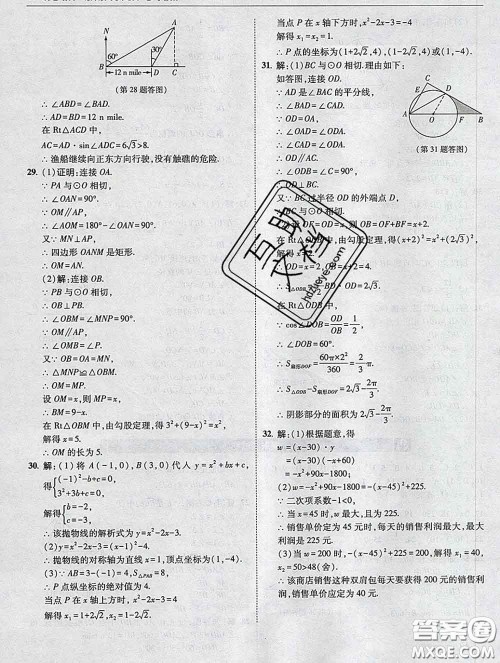 N
A
60°
30°
B
12 n mile
D
C
(第 28 题答图)
∴ ∠ABD = ∠BAD.
∴ AD = BD = 12 n mile.
在 Rt△ACD 中,
AC = AD · sin∠ADC = 6√3 > 8.
∴ 渔船继续向正东方向行驶,没有触礁的危险.
29. (1)证明:连接 OA.
∵ PA 与⊙O 相切,
∴ ∠OAN = 90°.
∵ OM∥AP,
∴ ∠AOM = 180° - ∠OAN = 90°.
又∵ MN⊥AP,
∴ 四边形 OANM 是矩形.
∴ OM = AN.
(2)解:连接 OB.
∵ PB 与⊙O 相切,
∴ OB⊥PB.
∴ ∠OBM = ∠MNP = 90°.
∵ OM∥AP,
∴ ∠OMB = ∠P.
又∵ OB = OA = MN,
∴ △MNP≌△OBM.
∴ OM = MP.
设 OM = x,则 MP = x,
∴ BM = 9 - x.
在 Rt△OBM 中,由勾股定理,得 3²+(9-x)² = x².
解得 x = 5.
∴ OM 的长为 5.
30. 解:(1)将 A(-1,0),B(3,0)代入 y = x²+bx+c,
得{(-1)²-b+c=0,
3²+3b+c=0,
解得{b=-2,
c=-3,
∴ 该抛物线的解析式为 y = x²-2x-3.
(2)y = x²-2x-3 = (x-1)²-4.
∴ 抛物线的对称轴为直线 x = 1,顶点坐标为(1,-4).
(3)∵ AB = 3-(-1) = 4,S△PAB = 8,
∴ P 点纵坐标的绝对值为 4.
当点 P 在 x 轴上方时,x²-2x-3=4
解得 x₁=1+2√2,x₂=1-2√2.
当点 P 在 x 轴下方时,x²-2x-3=-4
解得 x=1.
∴ P 点的坐标为(1+2√2,4),(1-2√2,4)或(1,-4).
31. 解:(1)BC 与⊙O 相切.理由如下:
如答图,连接 OD.
∵ AD 是∠BAC 的平分线,
∴ ∠BAD = ∠CAD.
又∵ OD = OA,
(第 31 题答图)
∴ OD∥AC.
∴ ∠ODB = ∠C = 90°.
∴ OD⊥BC.
又∵ BC 过半径 OD 的外端点 D,
在 Rt△ODB 中,由勾股定理,得(x+2)²=x²+(2√3)².
解得 x=2.
∵ cos∠DOB = OD/OB = 1/2,
∴ ∠DOB = 60°.
∴ S扇形DOF = 60π×2²/360 = 2π/3.
∴ 阴影部分的面积为 2√3 - 2π/3.
32. 解:(1)根据题意,得
w = (x-30)·y
= (x-30)(-x+60)
= -x²+90x-1800.
(2)w = -x²+90x-1800 = -(x-45)²+225.
∵ 二次项系数-1<0,
∴ 当 x=45 时,w 最大,且最大为 225.
∴ 销售单价定为 45 元时,每天的销售利润最大,最大利润是 225 元.
(3)当 w=200 时,-x²+90x-1800=200,解得 x₁=40,
x₂=50>48(舍).
∴ 该商店销售这种双肩包每天要获得 200 元的销售利润,销售单价应定为 40 元.
互助文档
hdzuoye.com
答案圈
MXQE.COM